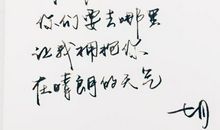 你们要去哪里
让我拥抱你
在晴朗的天气
七月